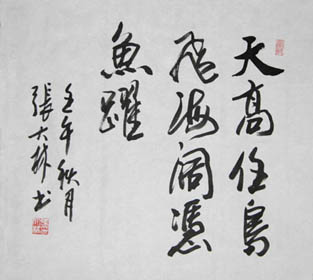 天高任鳥
飛海闊憑
魚躍
壬午秋月
張大林书